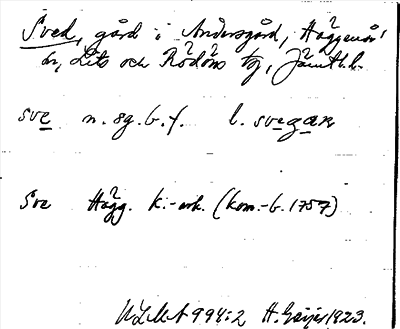 Sved, gård i Andersgård, Häggenås
sn, Lits och Rödöns tg, Jämtl. l.
sve n. sg. b. f. l. svegan
Sve Hägg. k:-ark. (kom.-b. 1757)
ULMA 994:2 H. Geijer 1923.